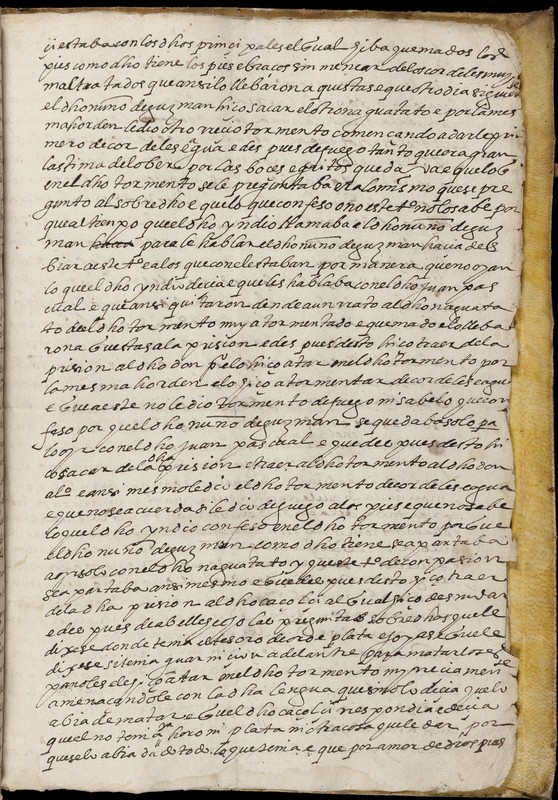 y estaba con los dhos prinçipales el qual yba quemados los
pies como dho tiene los pies e braços sin menear de los cordeles muy
maltratados que ansi lo llebaron a questas e que otro dia siguien
el dho nuño de guzman hiço sacar el otro naguatato e por la mes
ma horden le dio otro reçio tormento començando a darle pri
mero de cordeles e agua e des pues de fuego tanto que era gran
lastima de lo ber por las boces e gritos que daba e que lo q
en el dho tormento se le preguntaba era lo mismo que se pre
gunto al sobredho e que lo que confeso no este tº no lo sabe por
que al tienpo quel dho yndio llamaba el dho nuño de guz
man para le hablar el dho nuño de guzman hacia des
biar a este tº e a los que con el estaban por manera que no oyan
lo que el dho yndio decia e que les hablaba con el dho juan pas
cual e que ansi quitaron dende a un rato al dho naguata
to del dho tormento muy atormentado e quemado e lo lleba
ron a questas a la prision e des pues desto hiço traer de la
prision al dho don pº e lo hiço atar en el dho tormento por
la mesma horden e lo hiço atormentar de cordeles e agu
e que a este no le dio tormento de fuego ni sabe lo que con
feso por quel dho nuño de guzman se quedaba solo pa
lo oyr con el dho juan pascual e que des pues desto hi
ço sacar de la dha prision e traer al dho tormento al dho don
alº e ansi mesmo le dio el dho tormento de cordeles e agua
e que no se acuerda si le dio de fuego a los pies e que no sabe
lo quel dho yndio confeso en el dho tormento por que
el dho nuño de guzman como dho tiene se apartaba
a oyr solo con el dho naguatato y queste tº de conpasion
se apartaba ansi mesmo e que des pues desto hiço traer
de la dha prision al dho caçolçi al qual hiço desnudar
e des pues de abelle le preguntaba sobre dho que le
dixese donde tenia el tesoro de oro e plata e joyas e que le
dixese si tenia guarniçion adelante para matar los es
pañoles e hiço atar en el dho tormento muy reciamen
amenaçandole con la dha lengua que si no lo decia que lo
abia de matar e quel dho caçolçi respondia e decia
quel no tenia horo ni plata ni otra cosa que le dar por
que se lo abia dado todo lo que tenia e que por amor de dios pias